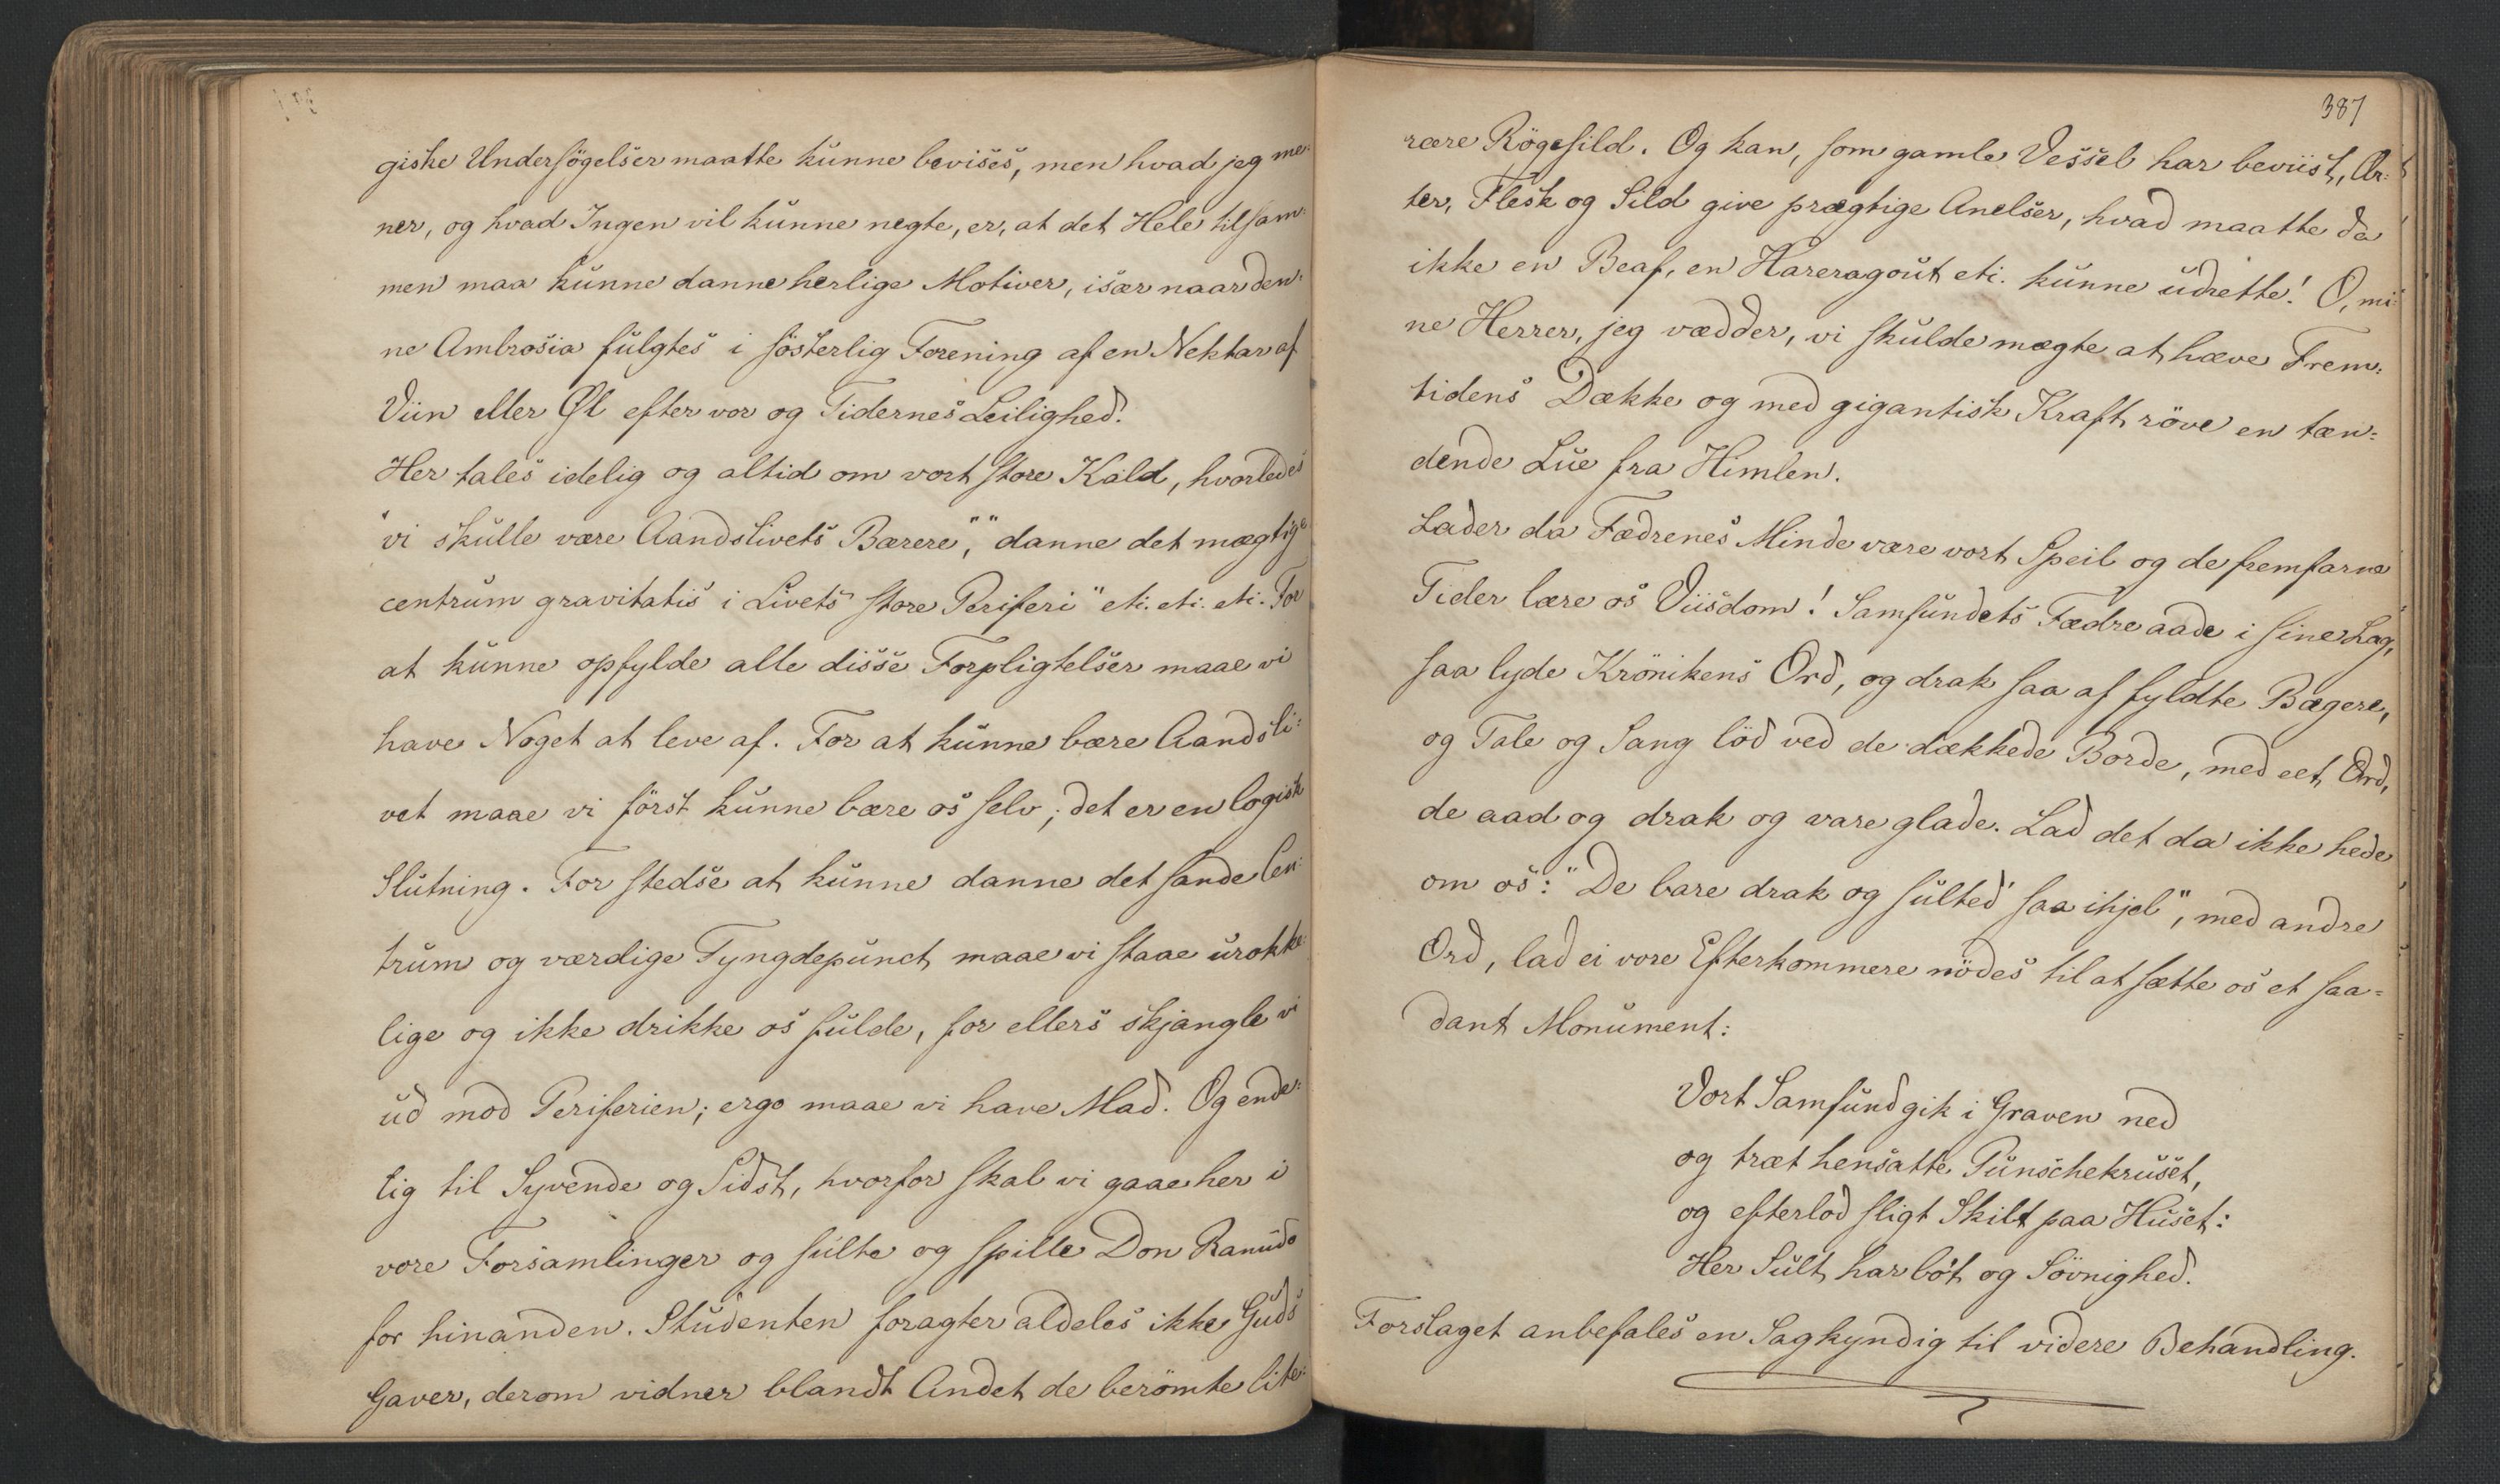 giske Undersögelser maatte kunne bevises, men hvad jeg me-
ner, og hvad Ingen vil kunne negte, er, at det Hele tilsam-
men maa kunne danne herlige Motiver, især naar den-
ne Ambrosia fulgtes i sösterlig Forening af en Nektar af
Viin eller Øl efter vor og Tidernes Leilighed.
Her tales idelig og altid om vort store Kald, hvorledes
"vi skulle være Aandslivets Bærere", "danne det mægtige
centrum gravitatis i Livets store Periferi" etc. etc. etc. For
at kunne opfylde alle disse Forpligtelser maae vi
have Noget at leve af. For at kunne bære Aandsli-
vet maae vi först kunne bære os selv; det er en logisk
Slutning. For stedse at kunne danne det sande Cen-
trum og værdige Tyngdepunct maae vi staae urokke-
lige og ikke drikke os fulde, for ellers skjangle vi
ud mod Periferien; ergo maae vi have Mad. Og ende-
lig til Syvende og Sidst, hvorfor skal vi gaae her i
vore Forsamlinger og sulte og spille Don Ranudo
for hinanden. Studenten foragter aldeles ikke Guds
Gaver, derom vidner blandt Andet de berömte lite-
387
rære Rögesild. Og kan, som gamle Vessel har beviist, Ær-
ter, Flesk og Sild give prægtige Anelser, hvad maatte da
ikke en Beaf, en Hareragout etc. kunne udrette! O, mi-
ne Herrer, jeg vædder, vi skulde mægte at hæve Frem-
tidens Dække og med gigantisk Kraft röve en tæn-
dende Lue fra Himlen.
Lader da Fædrenes Minde være vort Speil og de fremfarne
Tider lære os Viisdom! Samfundets Fædre aade i sine Lag,
saa lyde Krönikens Ord, og drak saa af fyldte Bægere,
og Tale og Sang löd ved de dækkede Borde, med eet Ord,
de aad og drak og vare glade. Lad det da ikke hede
om os: "De bare drak og sulted' saa ihjel", med andre
Ord, lad ei vore Efterkommere nödes til at sætte os et saa-
dant Monument:
Vort Samfund gik i Graven ned
og træt hensatte Punschekruset,
og efterlod sligt Skilt paa Huset:
Her Sult har bo't og Sövnighed.
Forslaget anbefales en Sagkyndig til videre Behandling.